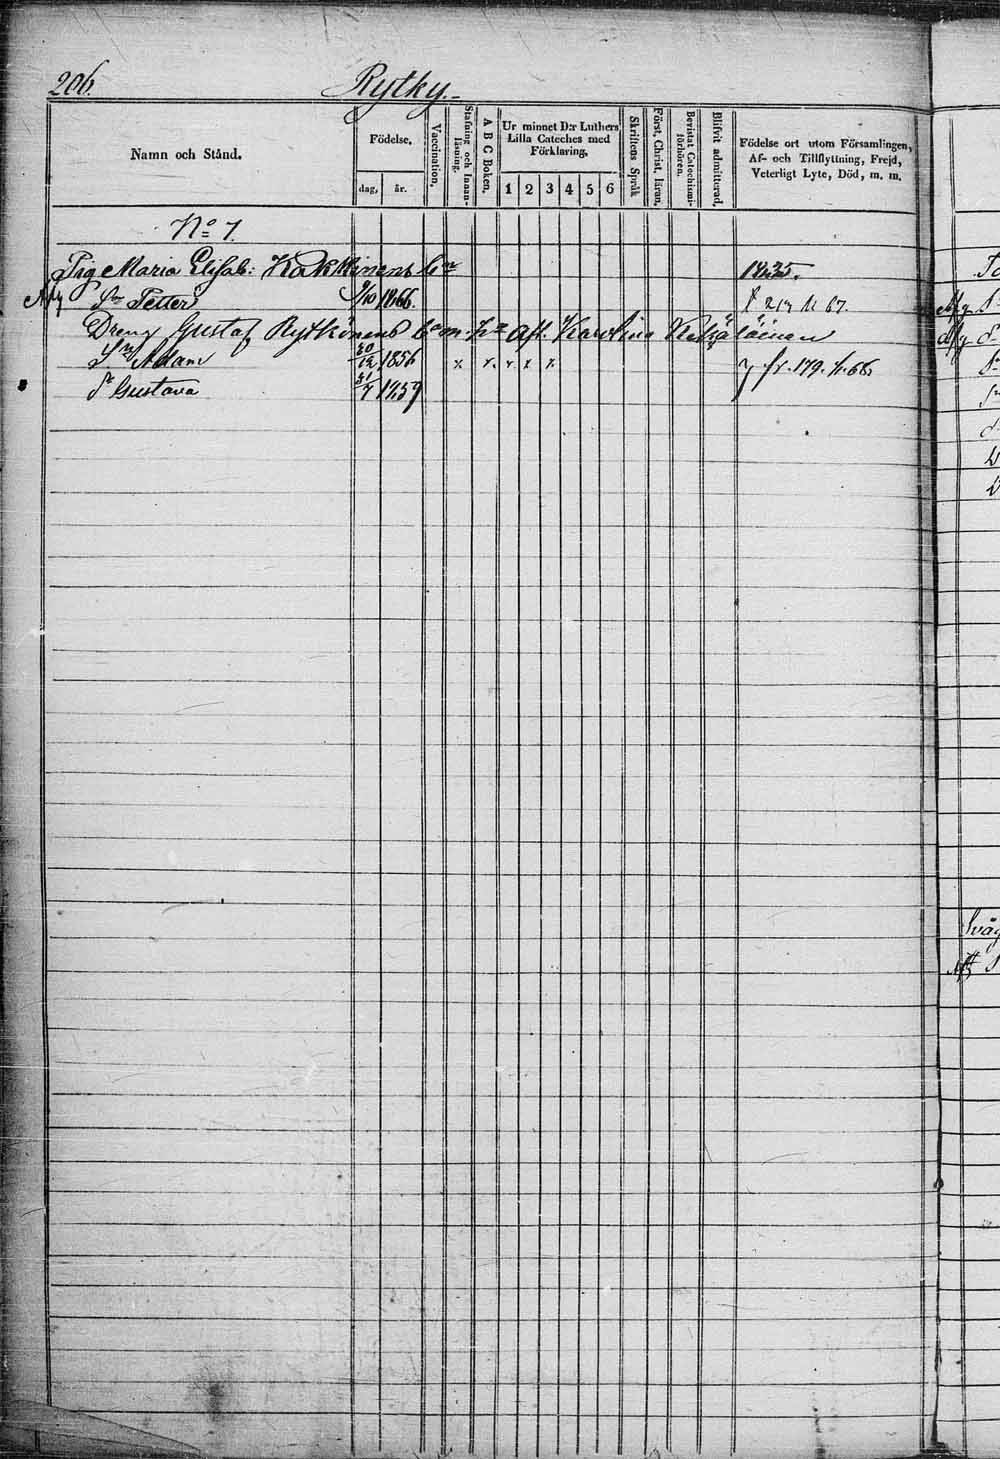 206. Rytky.
Namn och Stånd.
Födelse,
dag, år.
Vaccination,
Stafning och Innan-läsning.
A B C Boken.
Ur minnet D:r Luthers
Lilla Cateches med
Förklaring,
1 2 3 4 5 6
Skriftens Språk
Först. Christ. läran,
Bevistat Catechismi-förhören.
Blifvit admitterad,
Födelse ort utom Församlingen,
Af- och Tillflyttning, Frejd,
Veterligt Lyte, Död, m. m.
No 7.
Pig Maria Elisab: Kakkinens bn 1835.
Sn Petter 9/10 1866.
Dreng Gustaf Rytkönens bn m. h. afl. Karolina
Sn Adam 30/12 1856 x x x x x fr. 179. 68.
Dr Gustava 31/7 1859
Svåg